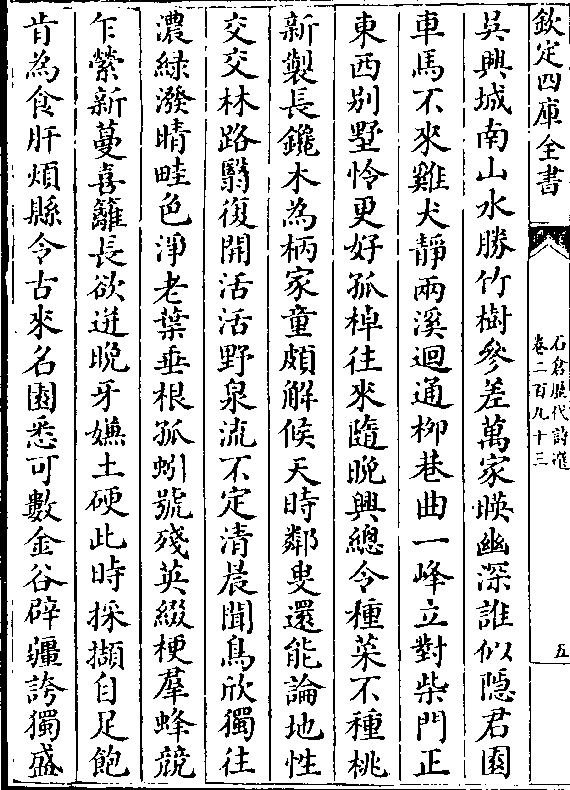 欽定四庫全書
石倉歴代詩選
卷二百九十三
五
吳興城南山水勝竹樹參差萬家暎幽深誰似隠君園
車馬不來雞犬靜兩溪迴通栁巷曲一峰立對柴門正
東西别墅怜更好孤棹往來隨晩興總令種菜不種桃
新製長鑱木為柄家童頗解候天時鄰叟還能論地性
交交林路翳復開活活野泉流不定清晨聞鳥欣獨往
濃緑潑晴畦色淨老葉垂根孤蚓號殘英綴梗羣蜂競
乍縈新蔓喜籬長欲迸晩牙嫌土硬此時採擷自足飽
肯為食肝煩縣令古來名園悉可數金谷辟疆誇獨盛